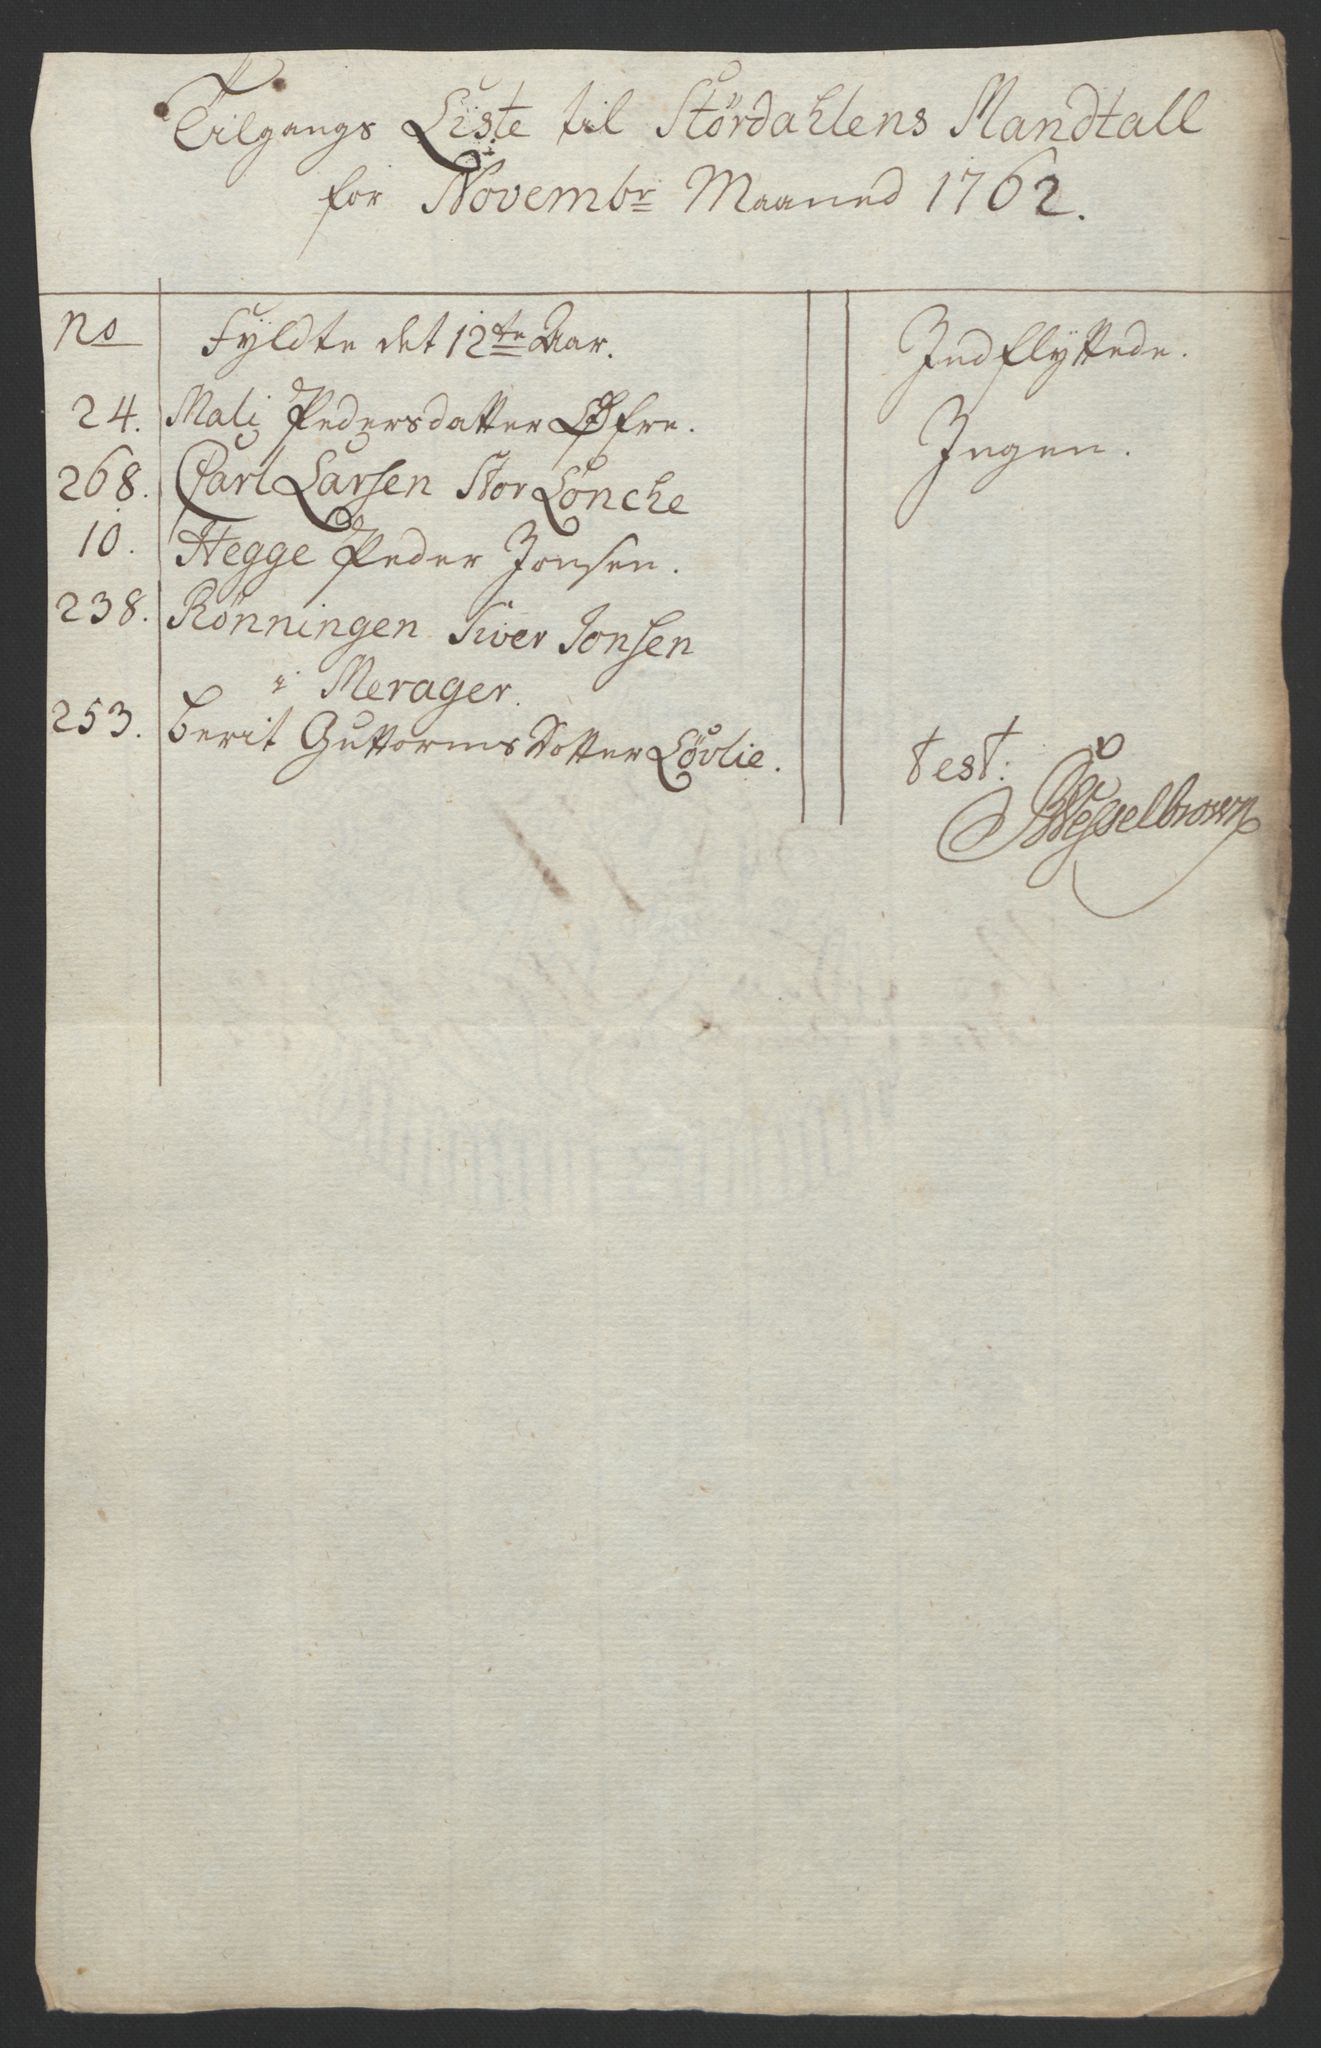 Tilgangs Liste til Stördahlens Mandtall
for Novembr Maaned 1762.
No Fyldte det 12te Aar. Indflyttede.
24. Mali Pedersdatter Øfre. Ingen.
268. Carl Larsen Stor Lönche
10. Hegge Peder Jonsen.
238. Rönningen Siver Jonsen
i Merager.
253. berit Guttorms Dotter Lövlie.
test:
Wesselbrown